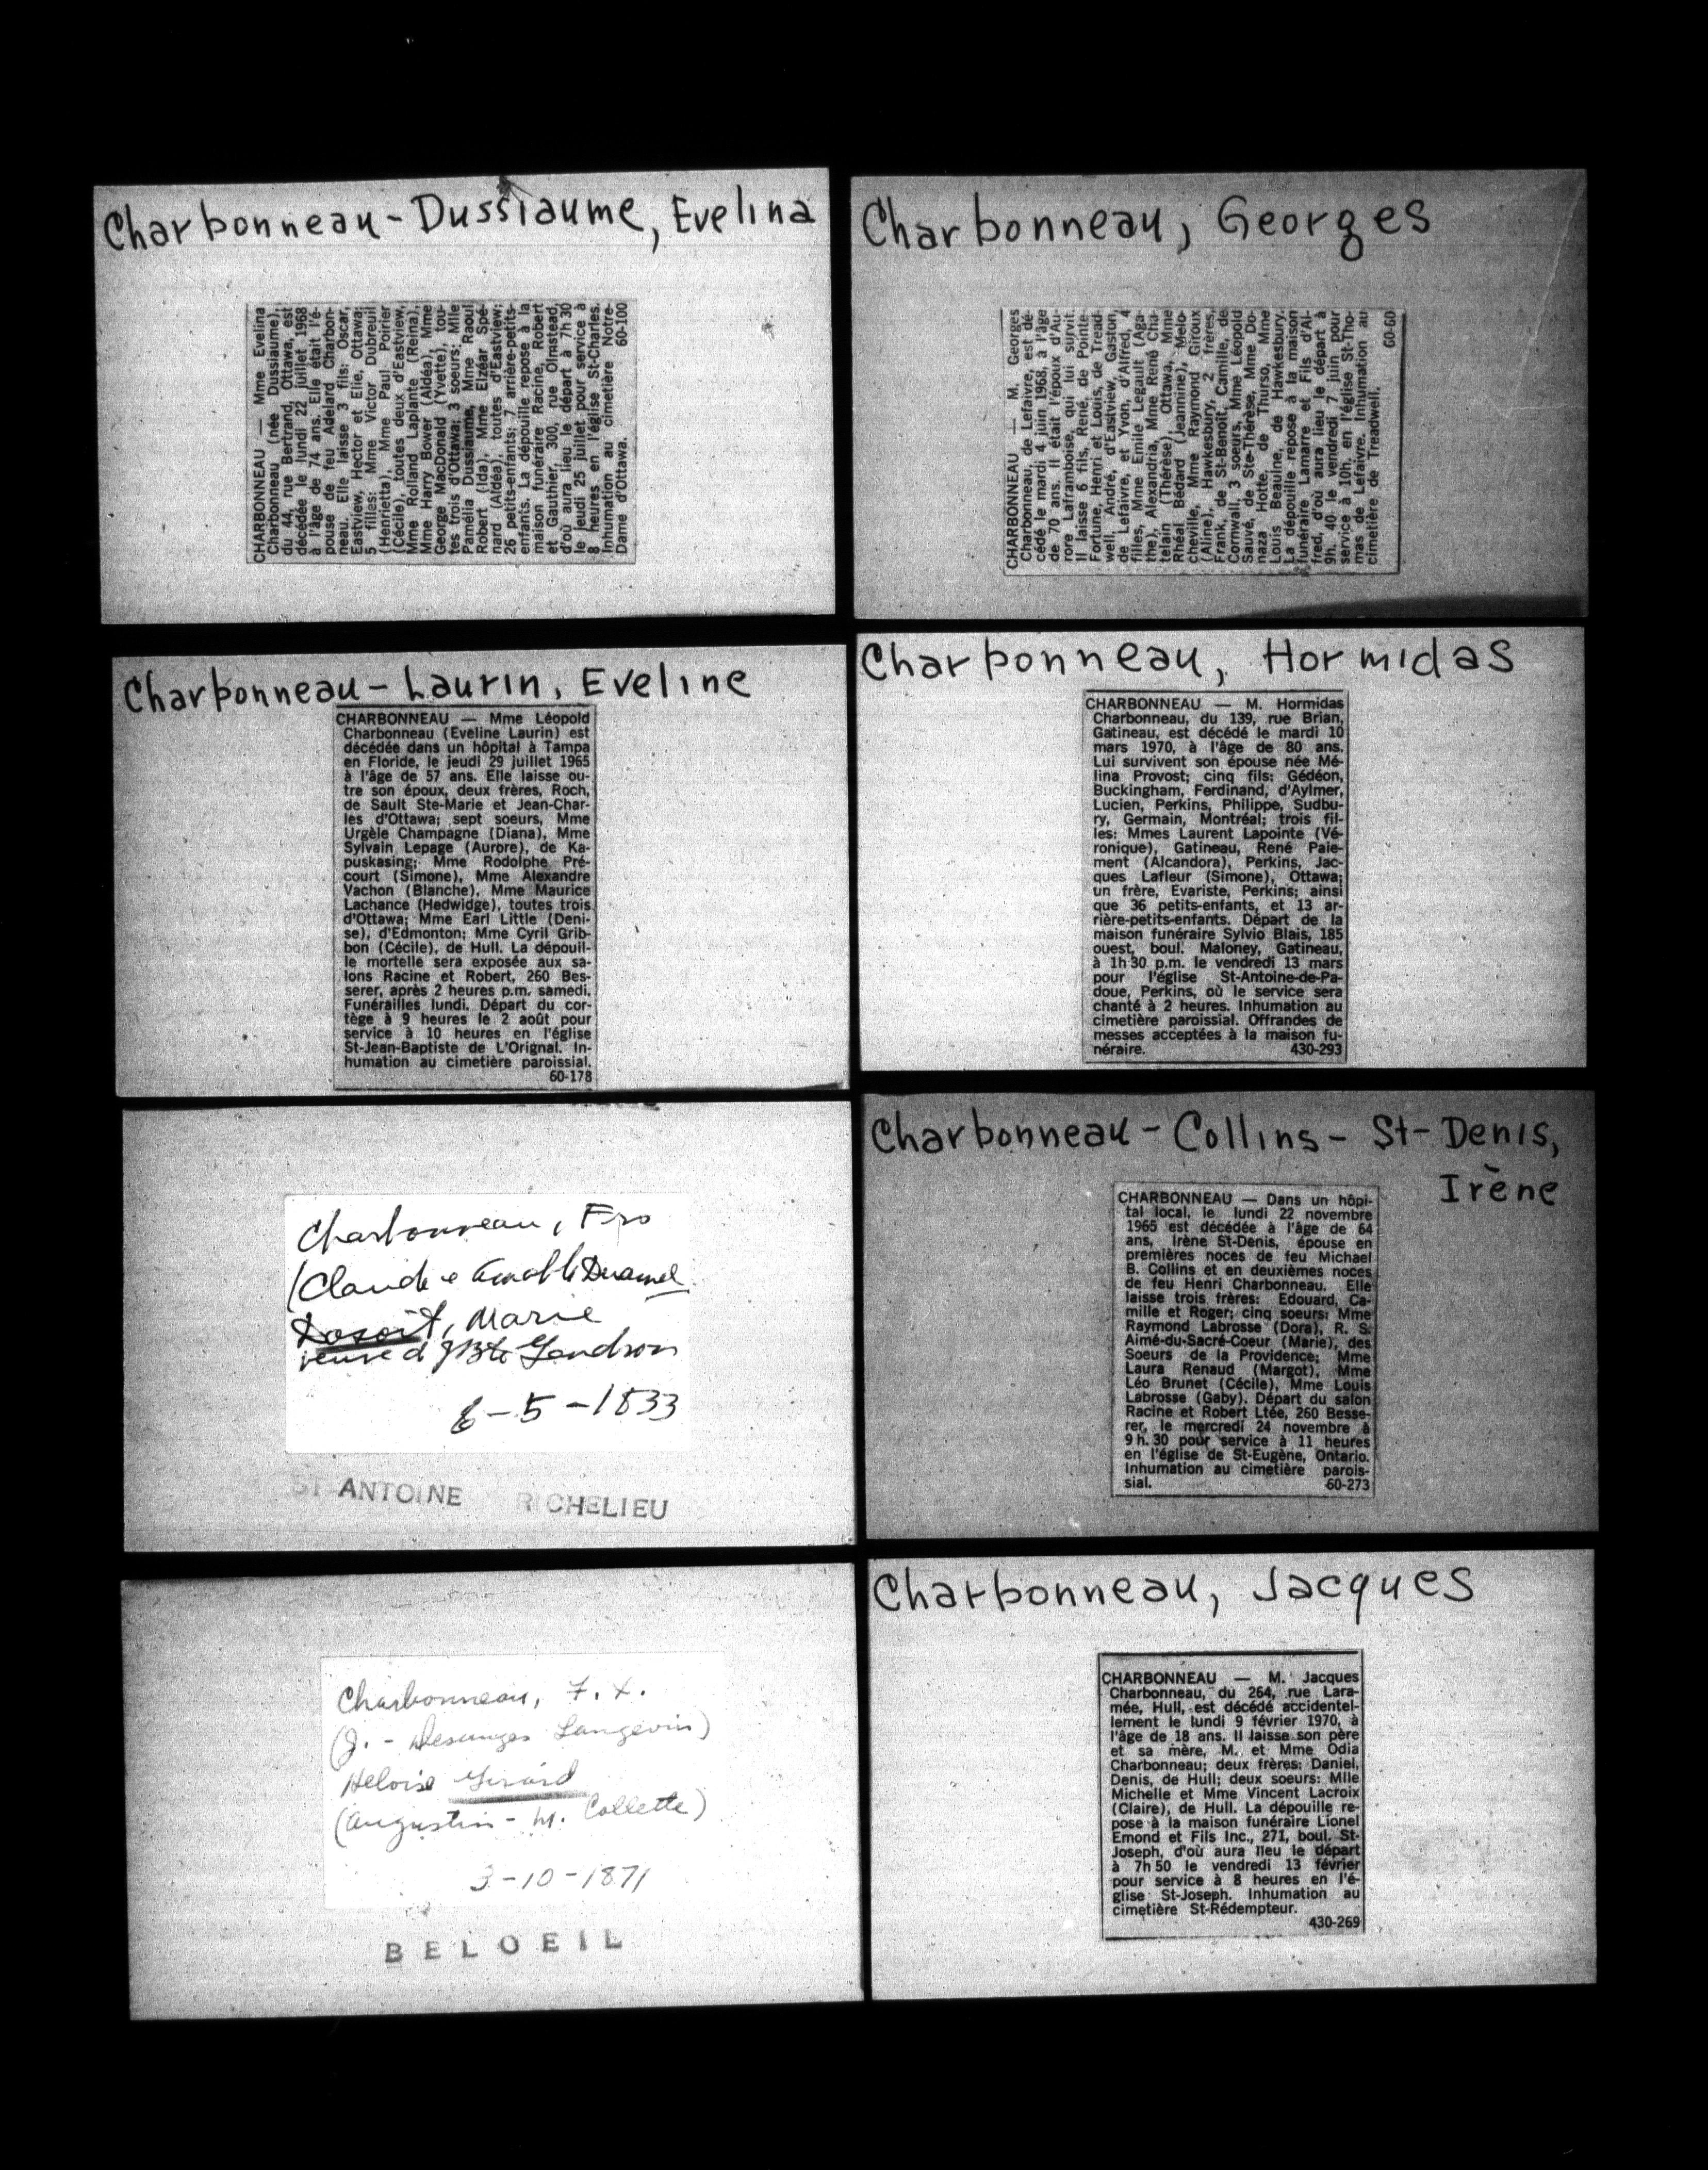 Charbonneau-Dussiaume, Evelina
CHARBONNEAU — Mme Evelina
Charbonneau (née Dussiaume),
du 44, rue Bertrand, Ottawa, est
décédée le lundi 22 juillet 1968
à l'âge de 74 ans. Elle était l'é-
pouse de feu Adelard Charbon-
neau. Elle laisse 3 fils: Oscar,
Eastview, Hector et Elie, Ottawa;
5 filles: Mme Victor Dubreuil
(Henrietta), Mme Paul Poirier
(Cécile), toutes deux d'Eastview,
Mme Rolland Laplante (Reina),
Mme Harry Bower (Aldéa), Mme
George MacDonald (Yvette), tou-
tes trois d'Ottawa; 3 soeurs: Mlle
Pamélia Dussiaume, Mme Raoul
Robert (Ida), Mme Elzéar Spé-
nard (Aldéa), toutes d'Eastview;
26 petits-enfants; 7 arrière-petits-
enfants. La dépouille repose à la
maison funéraire Racine, Robert
et Gauthier, 300, rue Olmstead,
d'où aura lieu le départ à 7h 30
le jeudi 25 juillet pour service à
8 heures en l'église St-Charles.
Inhumation au cimetière Notre-
Dame d'Ottawa. 60-100
Charbonneau, Georges
CHARBONNEAU — M. Georges
Charbonneau, de Lefaivre, est dé-
cédé le mardi 4 juin 1968, à l'âge
de 70 ans. Il était l'époux d'Au-
rore Laframboise, qui lui survit.
Il laisse 6 fils, René, de Pointe-
Fortune, Henri et Louis, de Tread-
well, André, d'Eastview, Gaston,
de Lefaivre, et Yvon, d'Alfred, 4
filles, Mme Emile Legault (Aga-
the), Alexandria, Mme René Cha-
telain (Thérèse), Ottawa, Mme
Rhéal Bédard (Jeannine), Melo-
cheville, Mme Raymond Giroux
(Aline), Hawkesbury, 2 frères,
Frank, de St-Benoît, Camille, de
Cornwall, 3 soeurs, Mme Léopold
Sauvé, de Ste-Thérèse, Mme Do-
naza Hotte, de Thurso, Mme
Louis Beaulne, de Hawkesbury.
La dépouille repose à la maison
funéraire Lamarre et Fils d'Al-
fred, d'où aura lieu le départ à
9h. 40 le vendredi 7 juin pour
service à 10h. en l'église St-Tho-
mas de Lefaivre. Inhumation au
cimetière de Treadwell. 60-60
Charbonneau-Laurin, Eveline
CHARBONNEAU — Mme Léopold
Charbonneau (Eveline Laurin) est
décédée dans un hôpital à Tampa
en Floride, le jeudi 29 juillet 1965
à l'âge de 57 ans. Elle laisse ou-
tre son époux, deux frères, Roch,
de Sault Ste-Marie et Jean-Char-
les d'Ottawa; sept soeurs, Mme
Urgèle Champagne (Diana), Mme
Sylvain Lepage (Aurore), de Ka-
puskasing; Mme Rodolphe Pré-
court (Simone), Mme Alexandre
Vachon (Blanche), Mme Maurice
Lachance (Hedwidge), toutes trois
d'Ottawa; Mme Earl Little (Deni-
se), d'Edmonton; Mme Cyril Grib-
bon (Cécile), de Hull. La dépouil-
le mortelle sera exposée aux sa-
lons Racine et Robert, 260 Bes-
serer, après 2 heures p.m. samedi.
Funérailles lundi. Départ du cor-
tège à 9 heures le 2 août pour
service à 10 heures en l'église
St-Jean-Baptiste de L'Orignal. In-
humation au cimetière paroissial.
60-178
Charbonneau, Hormidas
CHARBONNEAU — M. Hormidas
Charbonneau, du 139, rue Brian,
Gatineau, est décédé le mardi 10
mars 1970, à l'âge de 80 ans.
Lui survivent son épouse née Mé-
lina Provost; cinq fils: Gédéon,
Buckingham, Ferdinand, d'Aylmer,
Lucien, Perkins, Philippe, Sudbu-
ry, Germain, Montréal; trois fil-
les: Mmes Laurent Lapointe (Vé-
ronique), Gatineau, René Paie-
ment (Alcandora), Perkins, Jac-
ques Lafleur (Simone), Ottawa;
un frère, Evariste, Perkins; ainsi
que 36 petits-enfants, et 13 ar-
rière-petits-enfants. Départ de la
maison funéraire Sylvio Blais, 185
ouest, boul. Maloney, Gatineau,
à 1h 30 p.m. le vendredi 13 mars
pour l'église St-Antoine-de-Pa-
doue, Perkins, où le service sera
chanté à 2 heures. Inhumation au
cimetière paroissial. Offrandes de
messes acceptées à la maison fu-
néraire. 430-293
Charbonneau, Frs
(Claude
Marie
veuve d JBte Gendron
6-5-1833
ST-ANTOINE RICHELIEU
Charbonneau-Collins-St-Denis,
Irène
CHARBONNEAU — Dans un hôpi-
tal local, le lundi 22 novembre
1965 est décédée à l'âge de 64
ans, Irène St-Denis, épouse en
premières noces de feu Michael
B. Collins et en deuxièmes noces
de feu Henri Charbonneau. Elle
laisse trois frères: Edouard, Ca-
mille et Roger; cinq soeurs: Mme
Raymond Labrosse (Dora), R. S.
Aimé-du-Sacré-Coeur (Marie), des
Soeurs de la Providence; Mme
Laura Renaud (Margot), Mme
Léo Brunet (Cécile), Mme Louis
Labrosse (Gaby). Départ du salon
Racine et Robert Ltée, 260 Besse-
rer, le mercredi 24 novembre à
9 h. 30 pour service à 11 heures
en l'église de St-Eugène, Ontario.
Inhumation au cimetière parois-
sial. 60-273
Charbonneau, F. X.
(J. - Desanges Langevin)
Heloise Girard
(Augustin - M. Collette)
3-10-1871
BELOEIL
Charbonneau, Jacques
CHARBONNEAU — M. Jacques
Charbonneau, du 264, rue Lara-
mée, Hull, est décédé accidentel-
lement le lundi 9 février 1970, à
l'âge de 18 ans. Il laisse son père
et sa mère, M. et Mme Odia
Charbonneau; deux frères: Daniel,
Denis, de Hull; deux soeurs: Mlle
Michelle et Mme Vincent Lacroix
(Claire), de Hull. La dépouille re-
pose à la maison funéraire Lionel
Emond et Fils Inc., 271, boul. St-
Joseph, d'où aura lieu le départ
à 7h 50 le vendredi 13 février
pour service à 8 heures en l'é-
glise St-Joseph. Inhumation au
cimetière St-Rédempteur.
430-269